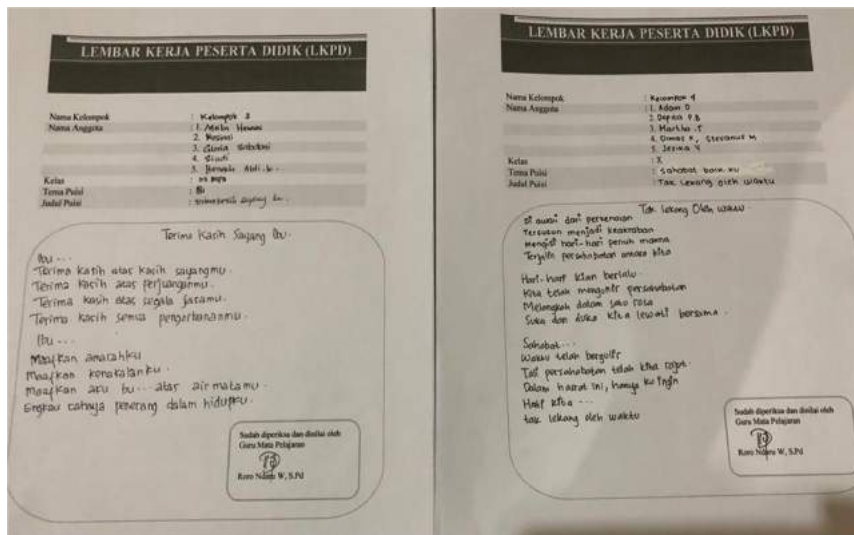 LEMBAR KERJA PESERTA DIDIK (LKPD)
Nama Kelompok : Kelompok 3
Nama Anggota : 1. Hawani
2. Rosiani
3. Gloria
4. Siauti
5.
Kelas :
Tema Puisi : Ibu
Judul Puisi : Terima kasih sayang Ibu.
Terima Kasih Sayang Ibu.
Ibu ...
Terima kasih atas kasih sayangmu.
Terima kasih atas perjuanganmu.
Terima kasih atas segala jasamu.
Terima kasih semua pengorbananmu.
Ibu ...
Maafkan amarahku
Maafkan kenakalanku.
Maafkan aku bu... atas air matamu.
Engkau cahaya penerang dalam hidupku.
Sudah diperiksa dan dinilai oleh
Guru Mata Pelajaran
Roro W, S.Pd
LEMBAR KERJA PESERTA DIDIK (LKPD)
Nama Kelompok : Kelompok 4
Nama Anggota : 1. Adam D
2. P.B
3. Martha .T
4. Dimas K, Stevanus M
5. Jerika Y
Kelas : X
Tema Puisi : Sahabat baik ku
Judul Puisi : Tak lekang oleh waktu
Tak lekang Oleh waktu.
Di awali dari perkenalan
Tersusun menjadi keakraban
Mengisi hari-hari penuh makna
Terjalin persahabatan antara kita
Hari-hari kian berlalu.
Kita telah mengukir persahabatan
Melangkah dalam satu rasa
Suka dan duka kita lewati bersama.
Sahabat...
Waktu telah bergulir
Tali persahabatan telah kita rajut.
Dalam hasrat ini, hanya ku ingin
Hati kita ...
tak lekang oleh waktu
Sudah diperiksa dan dinilai oleh
Guru Mata Pelajaran
Roro W, S.Pd